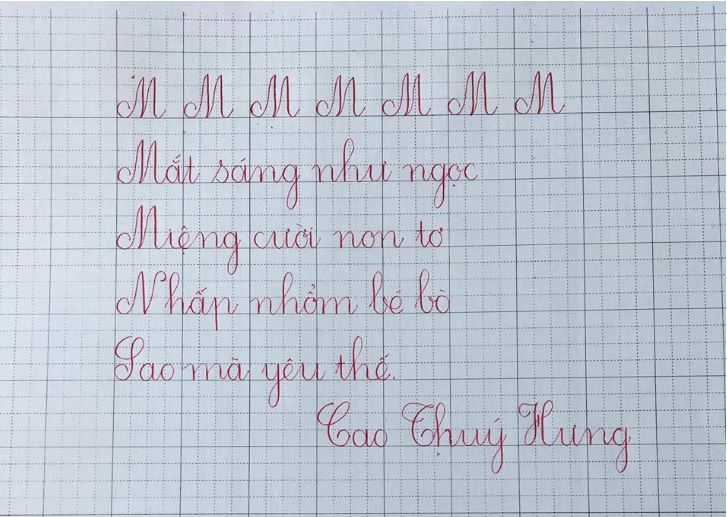 M M M M M M M
Mắt sáng như ngọc
Miệng cười non tơ
Nhấp nhổm bé bò
Sao mà yêu thế.
Cao Thuý Hưng